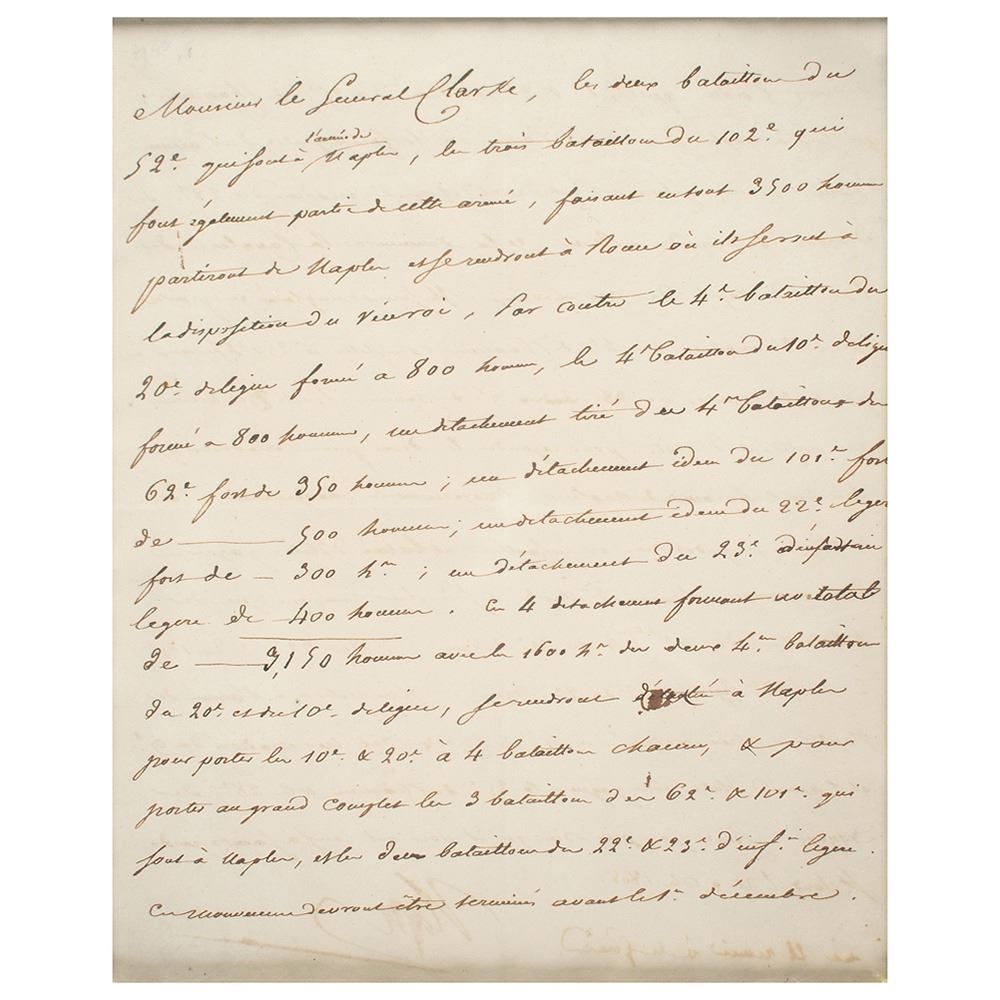 Monsieur le General Clarke, les deux bataillons du
52e. qui sont à l'armée de Naples, les trois bataillons du 102e. qui
font également partie de cette armée, faisant en tout 3500 hommes
partiront de Naples et se rendront à Rome où ils seront à
la disposition du Viceroi, Par contre le 4e. bataillon du
20e. de ligne formé a 800 hommes, le 4e bataillon du 10e. de ligne
formé a 800 hommes, un détachement tiré des 4es bataillons du
62e. fort de 350 hommes; un détachement idem du 101e. fort
de — 500 hommes; un détachement idem du 22e. leger
fort de — 300 hes; un détachement du 23e. d'infanterie
legere de 400 hommes. Ces 4 detachemens formant un total
de — 3,150 hommes avec les 1600 hes des deux 4es bataillons
du 20e. et du 10e. de ligne, se rendront à Naples
pour porter les 10e. & 20e. à 4 bataillons chacun, & pour
porter au grand complet les 3 bataillons des 62e. & 101e. qui
sont à Naples, et les deux bataillons du 22e. & 23e. d'inf.ie legere.
Ces mouvemens devront être terminés avant le 1er. décembre.